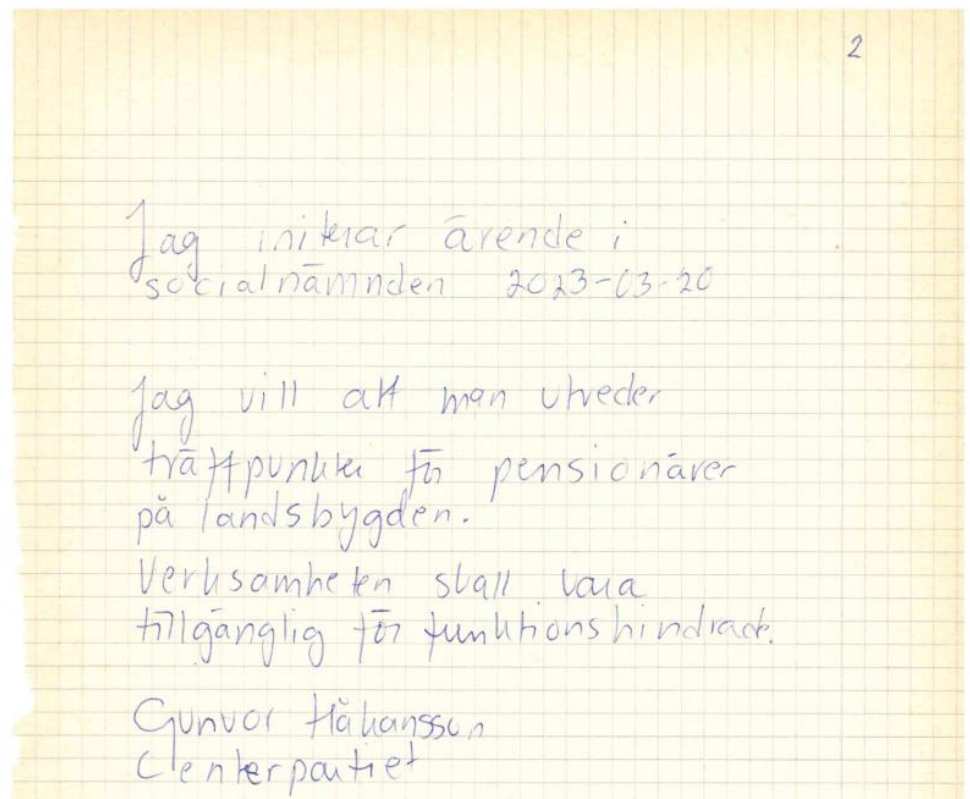 2
Jag initierar ärende i
socialnämnden 2023-03-20
Jag vill att man utreder
träffpunkter för pensionärer
på landsbygden.
Verksamheten skall vara
tillgänglig för funktionshindrade.
Gunvor Håkansson
Centerpartiet